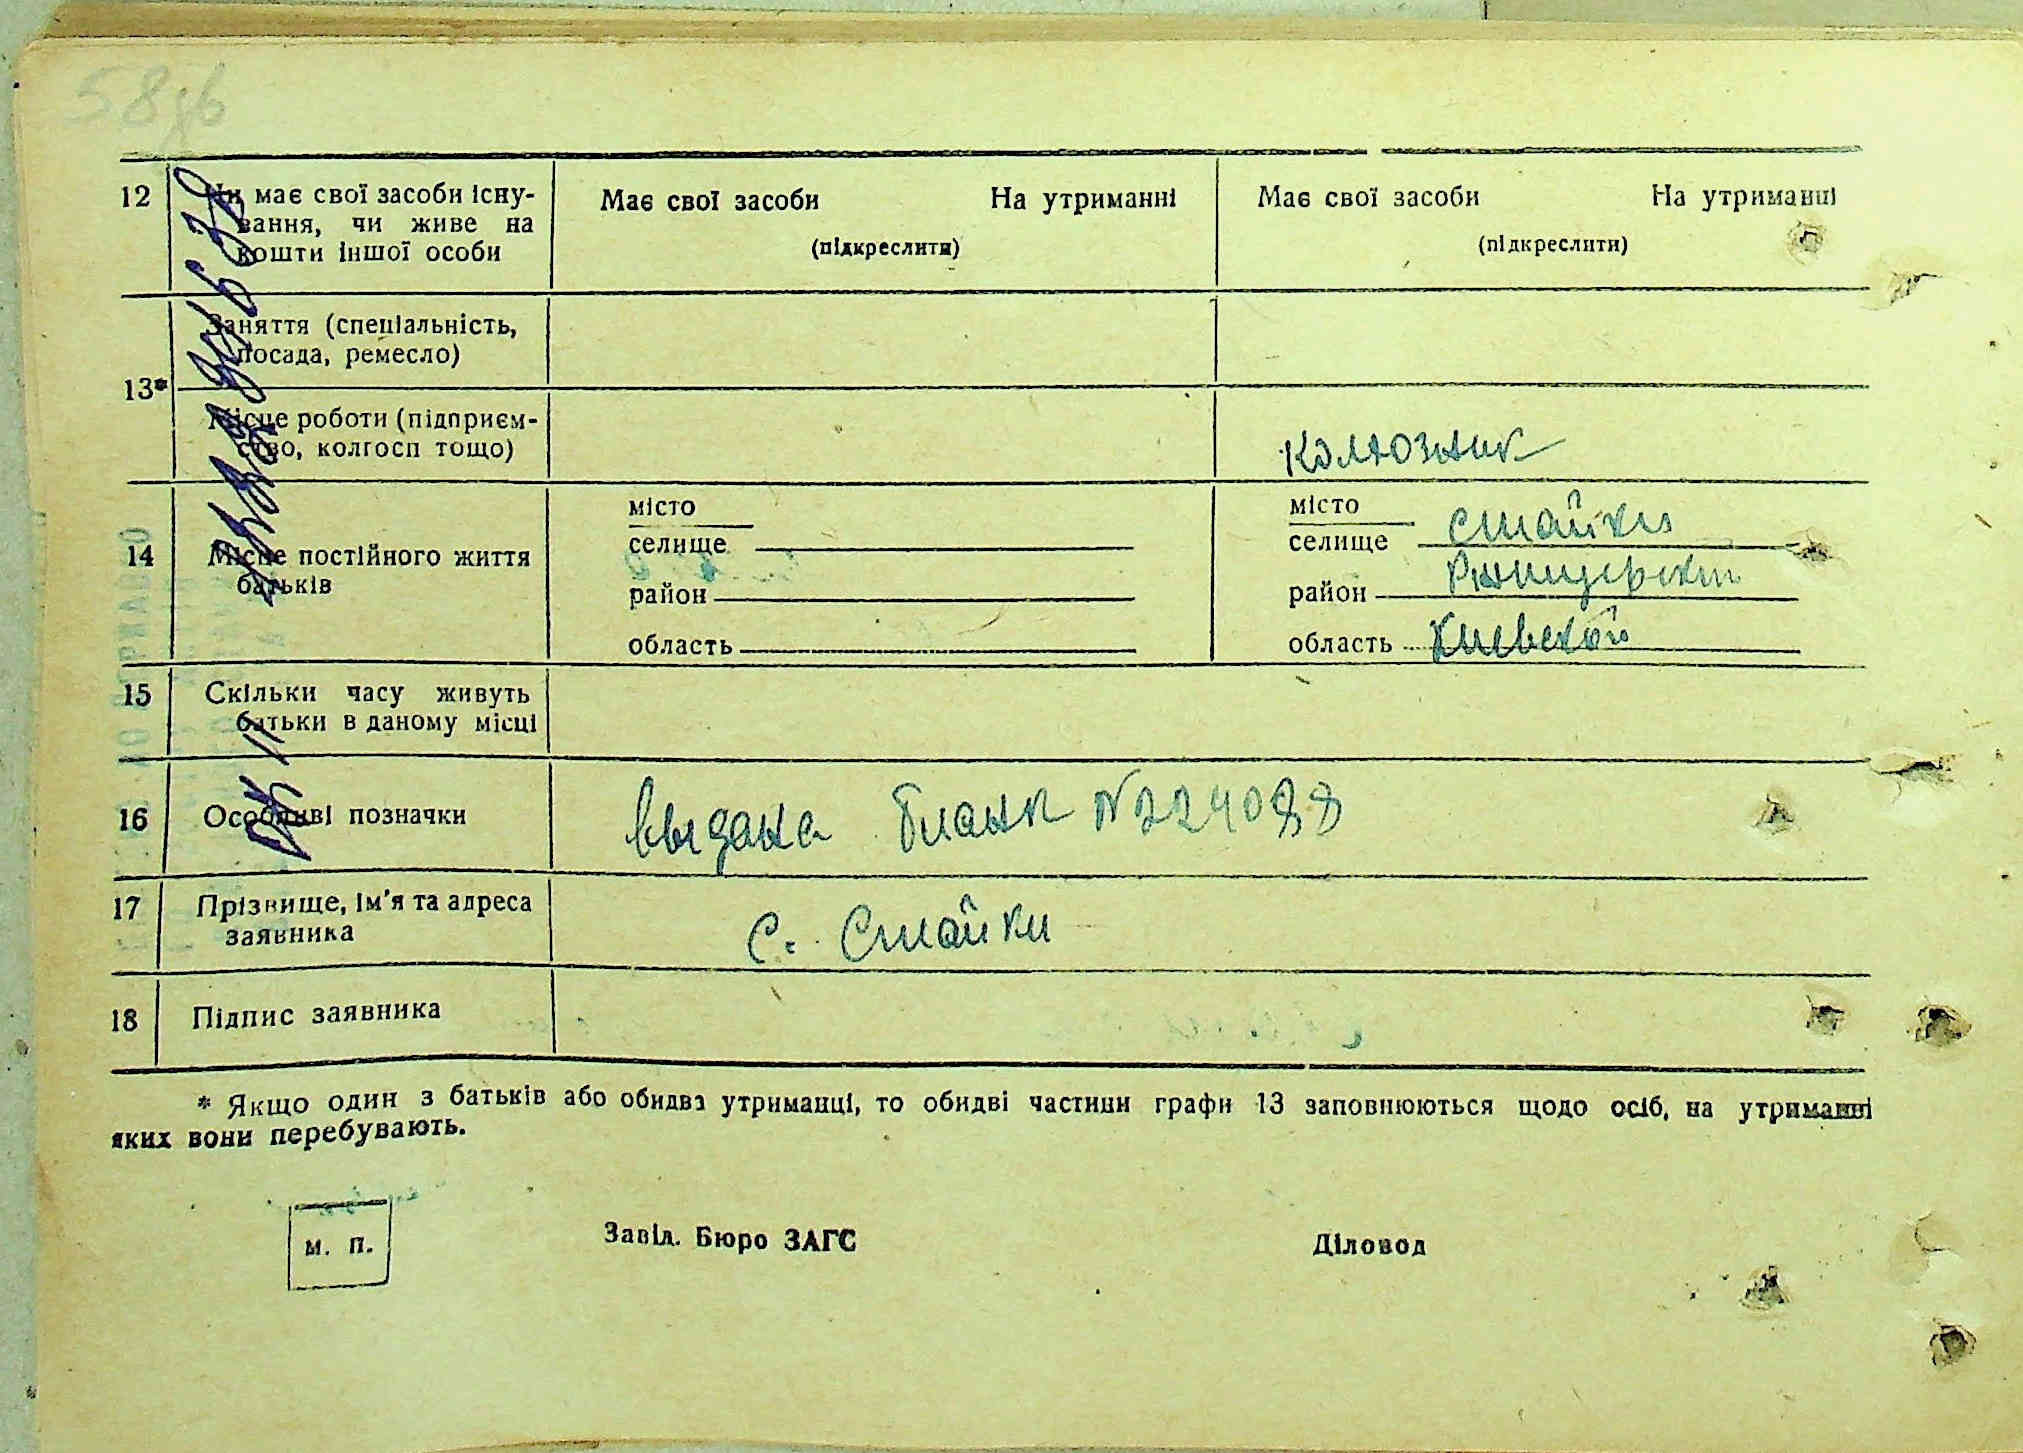 12
Чи має свої засоби існу-
вання, чи живе на
кошти іншої особи
Має свої засоби На утриманні
(підкреслити)
Має свої засоби На утриманні
(підкреслити)
13*
Заняття (спеціальність,
посада, ремесло)
Місце роботи (підприєм-
ство, колгосп тощо)
колхозник
14
Місце постійного життя
батьків
місто
селище
район
область
місто
селище стайки
район Ржищевский
область Киевской
15
Скільки часу живуть
батьки в даному місці
16
Особливі позначки
выдана бланк №224088
17
Прізвище, ім'я та адреса
заявника
с. Стайки
18
Підпис заявника
* Якщо один з батьків або обидва утриманці, то обидві частини графи 13 заповнюються щодо осіб, на утриманні
яких вони перебувають.
М. П.
Завід. Бюро ЗАГС
Діловод